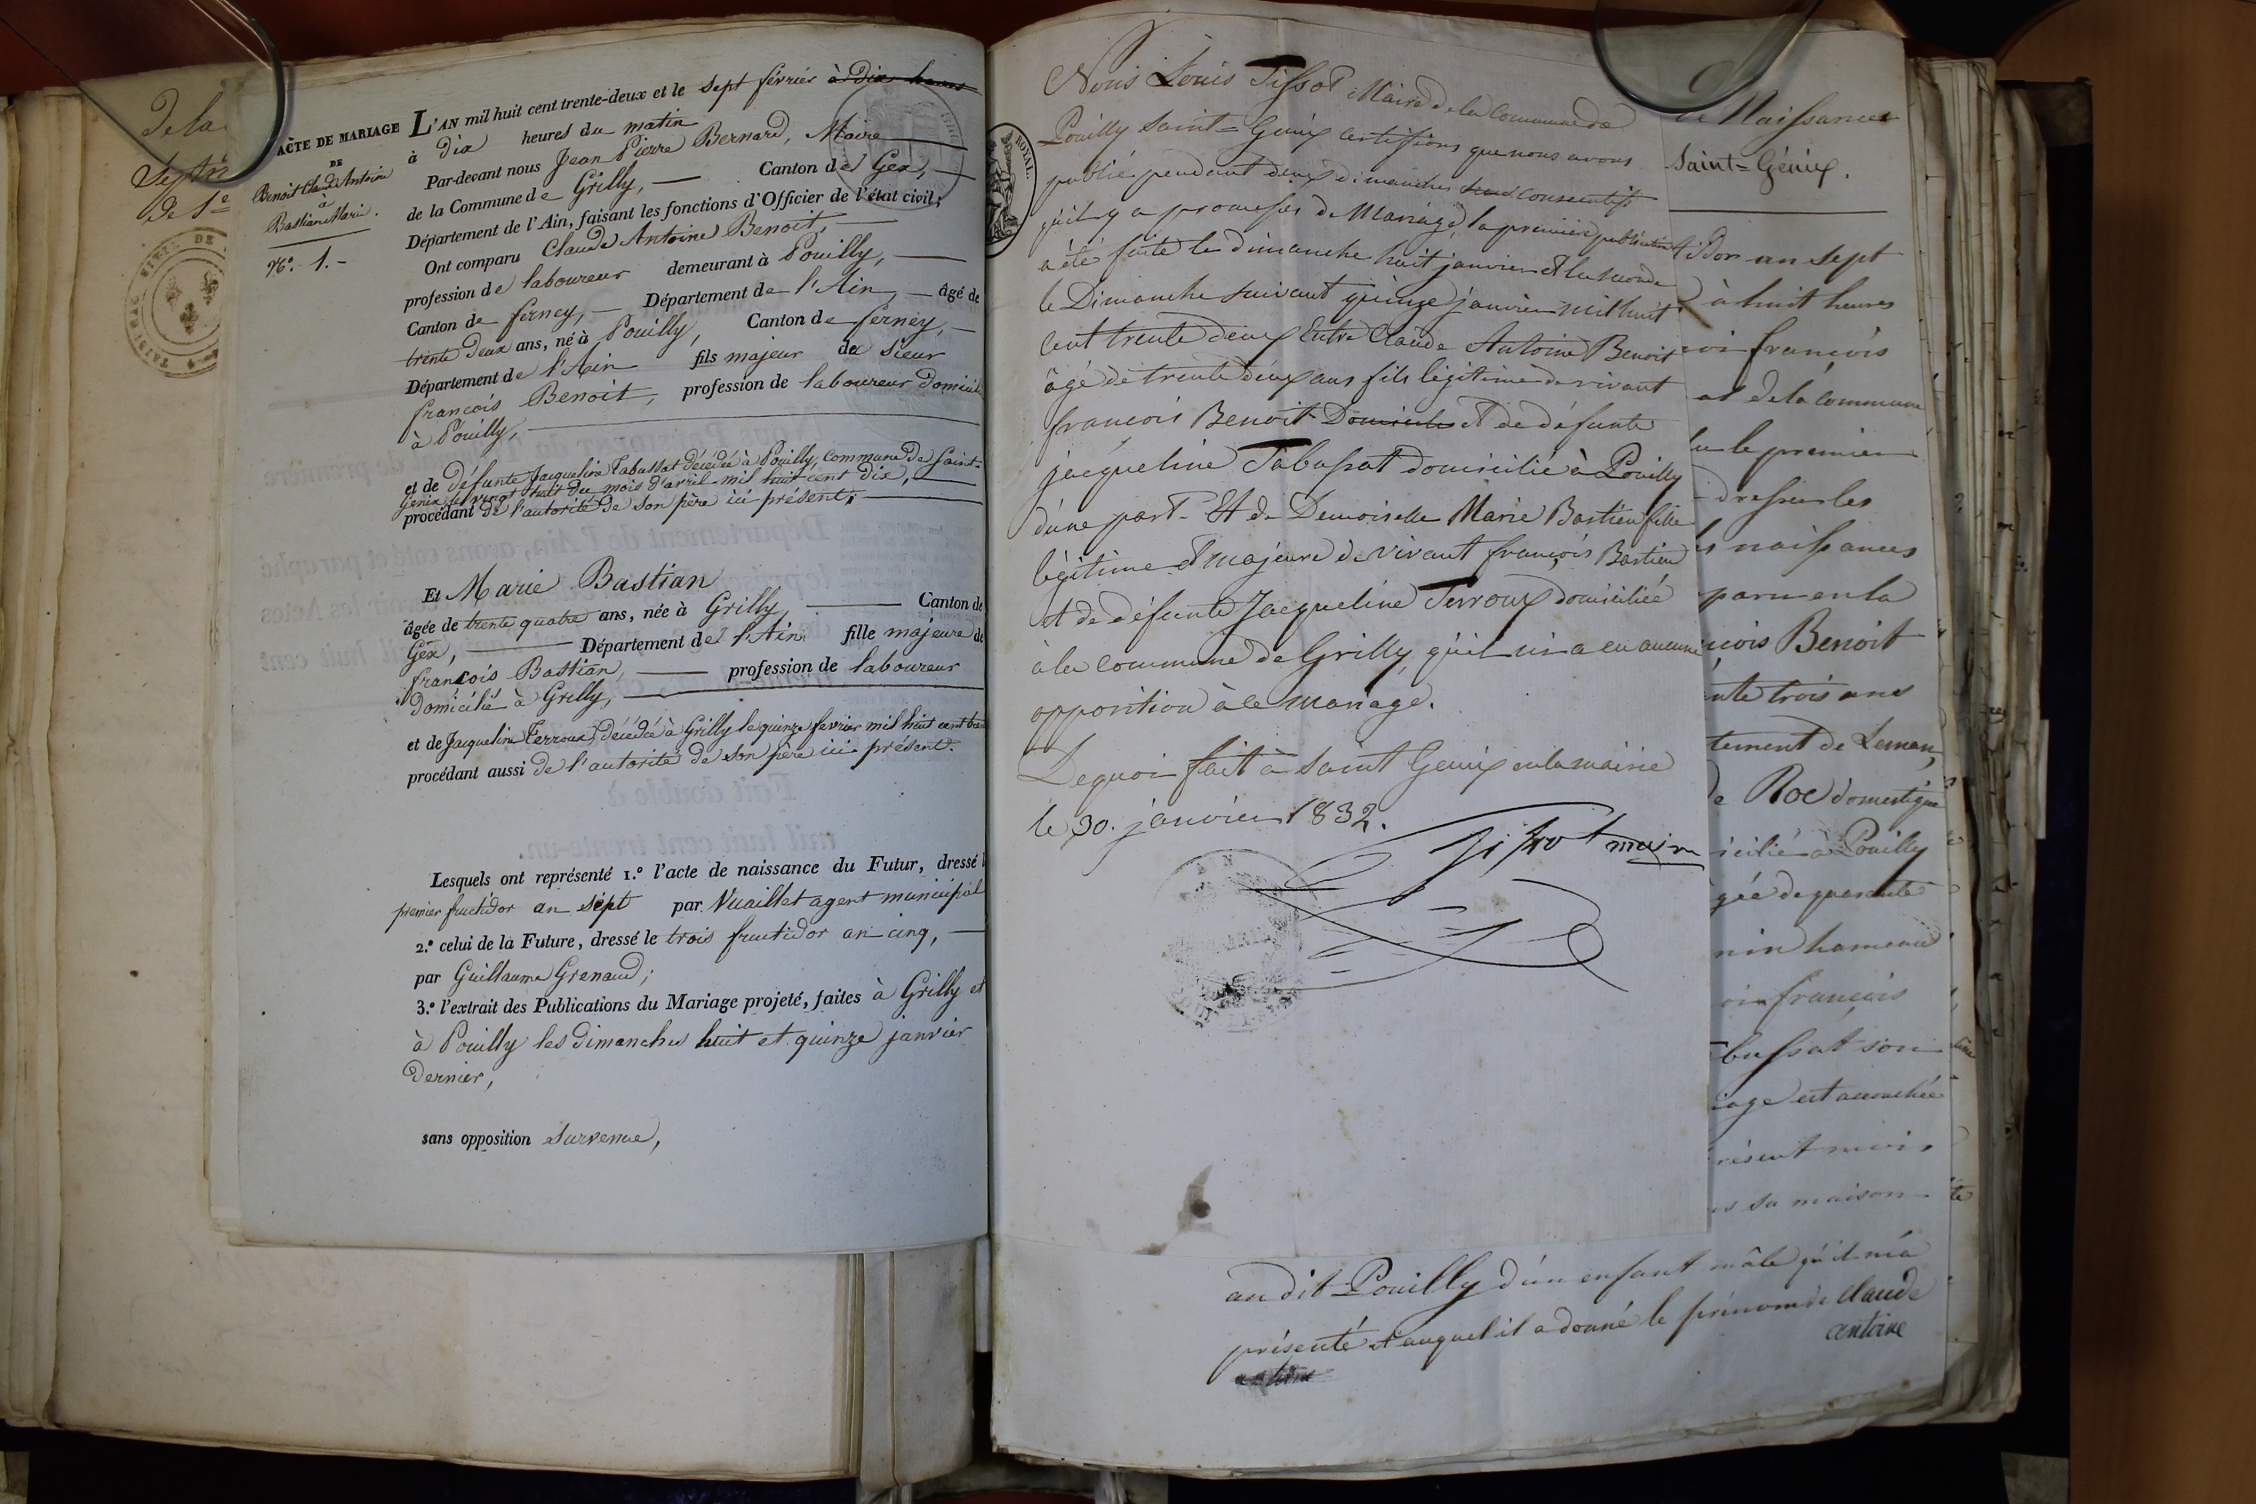 de la
Septr
de Sé
ACTE DE MARIAGE
DE
Benoit Claude Antoine
à
Bastian Marie.
N°. 1.
L'AN mil huit cent trente-deux et le sept février à dix heures
à dix heures du matin
Par-devant nous Jean Pierre Bernard, Maire
de la Commune de Grilly, Canton de Gex,
Département de l'Ain, faisant les fonctions d'Officier de l'état civil;
Ont comparu Claude Antoine Benoit,
profession de laboureur demeurant à Pouilly,
Canton de ferney, Département de l'Ain, âgé de
trente deux ans, né à Pouilly, Canton de ferney,
Département de l'Ain fils majeur de sieur
françois Benoit, profession de laboureur domicilié
à Pouilly,
et de défunte Jacqueline Tabussat décédée à Pouilly, commune de saint-
Genix le vingt huit du mois d'avril mil huit cent dix,
procédant de l'autorité de son père ici présent,
Et Marie Bastian
âgée de trente quatre ans, née à Grilly Canton de
Gex, Département de l'Ain fille majeure de
françois Bastian, profession de laboureur
domicilié à Grilly,
et de Jacqueline Terroux, décédée à Grilly le quinze fevrier mil huit cent
procédant aussi de l'autorité de son père ici présent.
Lesquels ont représenté 1.° l'acte de naissance du Futur, dressé l
premier fructidor an sept par Vuaillet agent municipal
2.° celui de la Future, dressé le trois fructidor an cinq,
par Guillaume Grenaud;
3.° l'extrait des Publications du Mariage projeté, faites à Grilly et
à Pouilly les dimanches huit et quinze janvier
dernier,
sans opposition survenue,
ROYAL.
Nous Louis Tissot Maire de la Commune de
Pouilly Saint-Genix certifions que nous avons
publié pendant deux dimanches consecutifs
qu'il y a promesses de Mariage, la première publication
a été faite le dimanche huit janvier et la seconde
le Dimanche suivant quinze janvier mil huit
cent trente deux Entre Claude Antoine Benoit
âgé de trente deux ans fils légitime de vivant
françois Benoit Domicilié et de défunte
jacqueline Tabussat domicilié à Pouilly
d'une part. Et de Demoiselle Marie Bastien fille
légitime et majeure de vivant françois Bastien
et de défunte Jacqueline Terroux domiciliée
à la commune de Grilly, qu'il n'y a eu aucune
opposition à ce mariage.
Dequoi fait à saint Genix en la mairie
le 30. janvier 1832.
Tissot maire
de Naissances
Saint-Génix.
tidor an sept
à huit heures
françois
de la commune
le premier
dresser les
naissances
paru en la
çois Benoit
nte trois ans
tement de Leman,
de Roc domestique
icilié à Pouilly
gée de quarante
nin hameau
françois
bussat son
iage est accouchée
résent mois
sa maison
au dit Pouilly d'un enfant mâle qu'il m'a
présenté et auquel il a donné le prénom de Claude
antoine